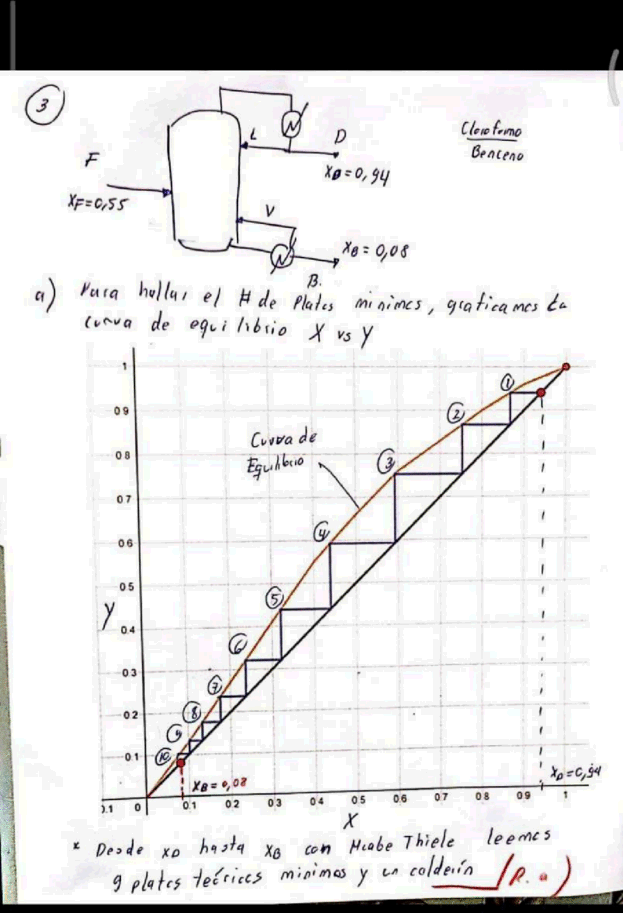 3
Cloroformo
Benceno
F
XF=0,55
L
D
XD=0,94
V
XB=0,08
B.
a) Para hallar el # de Platos minimos, graficamos la
curva de equilibrio X vs Y
1
0.9
0.8
0.7
0.6
0.5
0.4
0.3
0.2
0.1
Y
Curva de
Equilibrio
1
2
3
4
5
6
7
8
9
10
XB=0,08
XD=0,94
0.1
0
0.1
0.2
0.3
0.4
0.5
0.6
0.7
0.8
0.9
1
X
* Desde XD hasta XB con Mcabe Thiele leemos
9 platos teóricos minimos y un calderín (R. a)